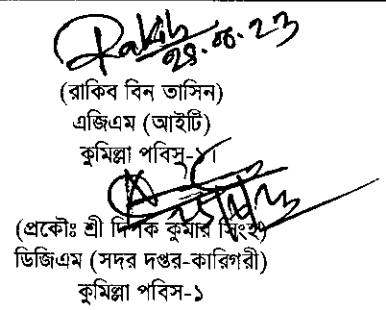 Rakib
(রাকিব বিন তাসিন)
এজিএম (আইটি)
কুমিল্লা পবিস-১।
(প্রকৌঃ শ্রী দিপক কুমার সিংহ)
ডিজিএম (সদর দপ্তর-কারিগরী)
কুমিল্লা পবিস-১